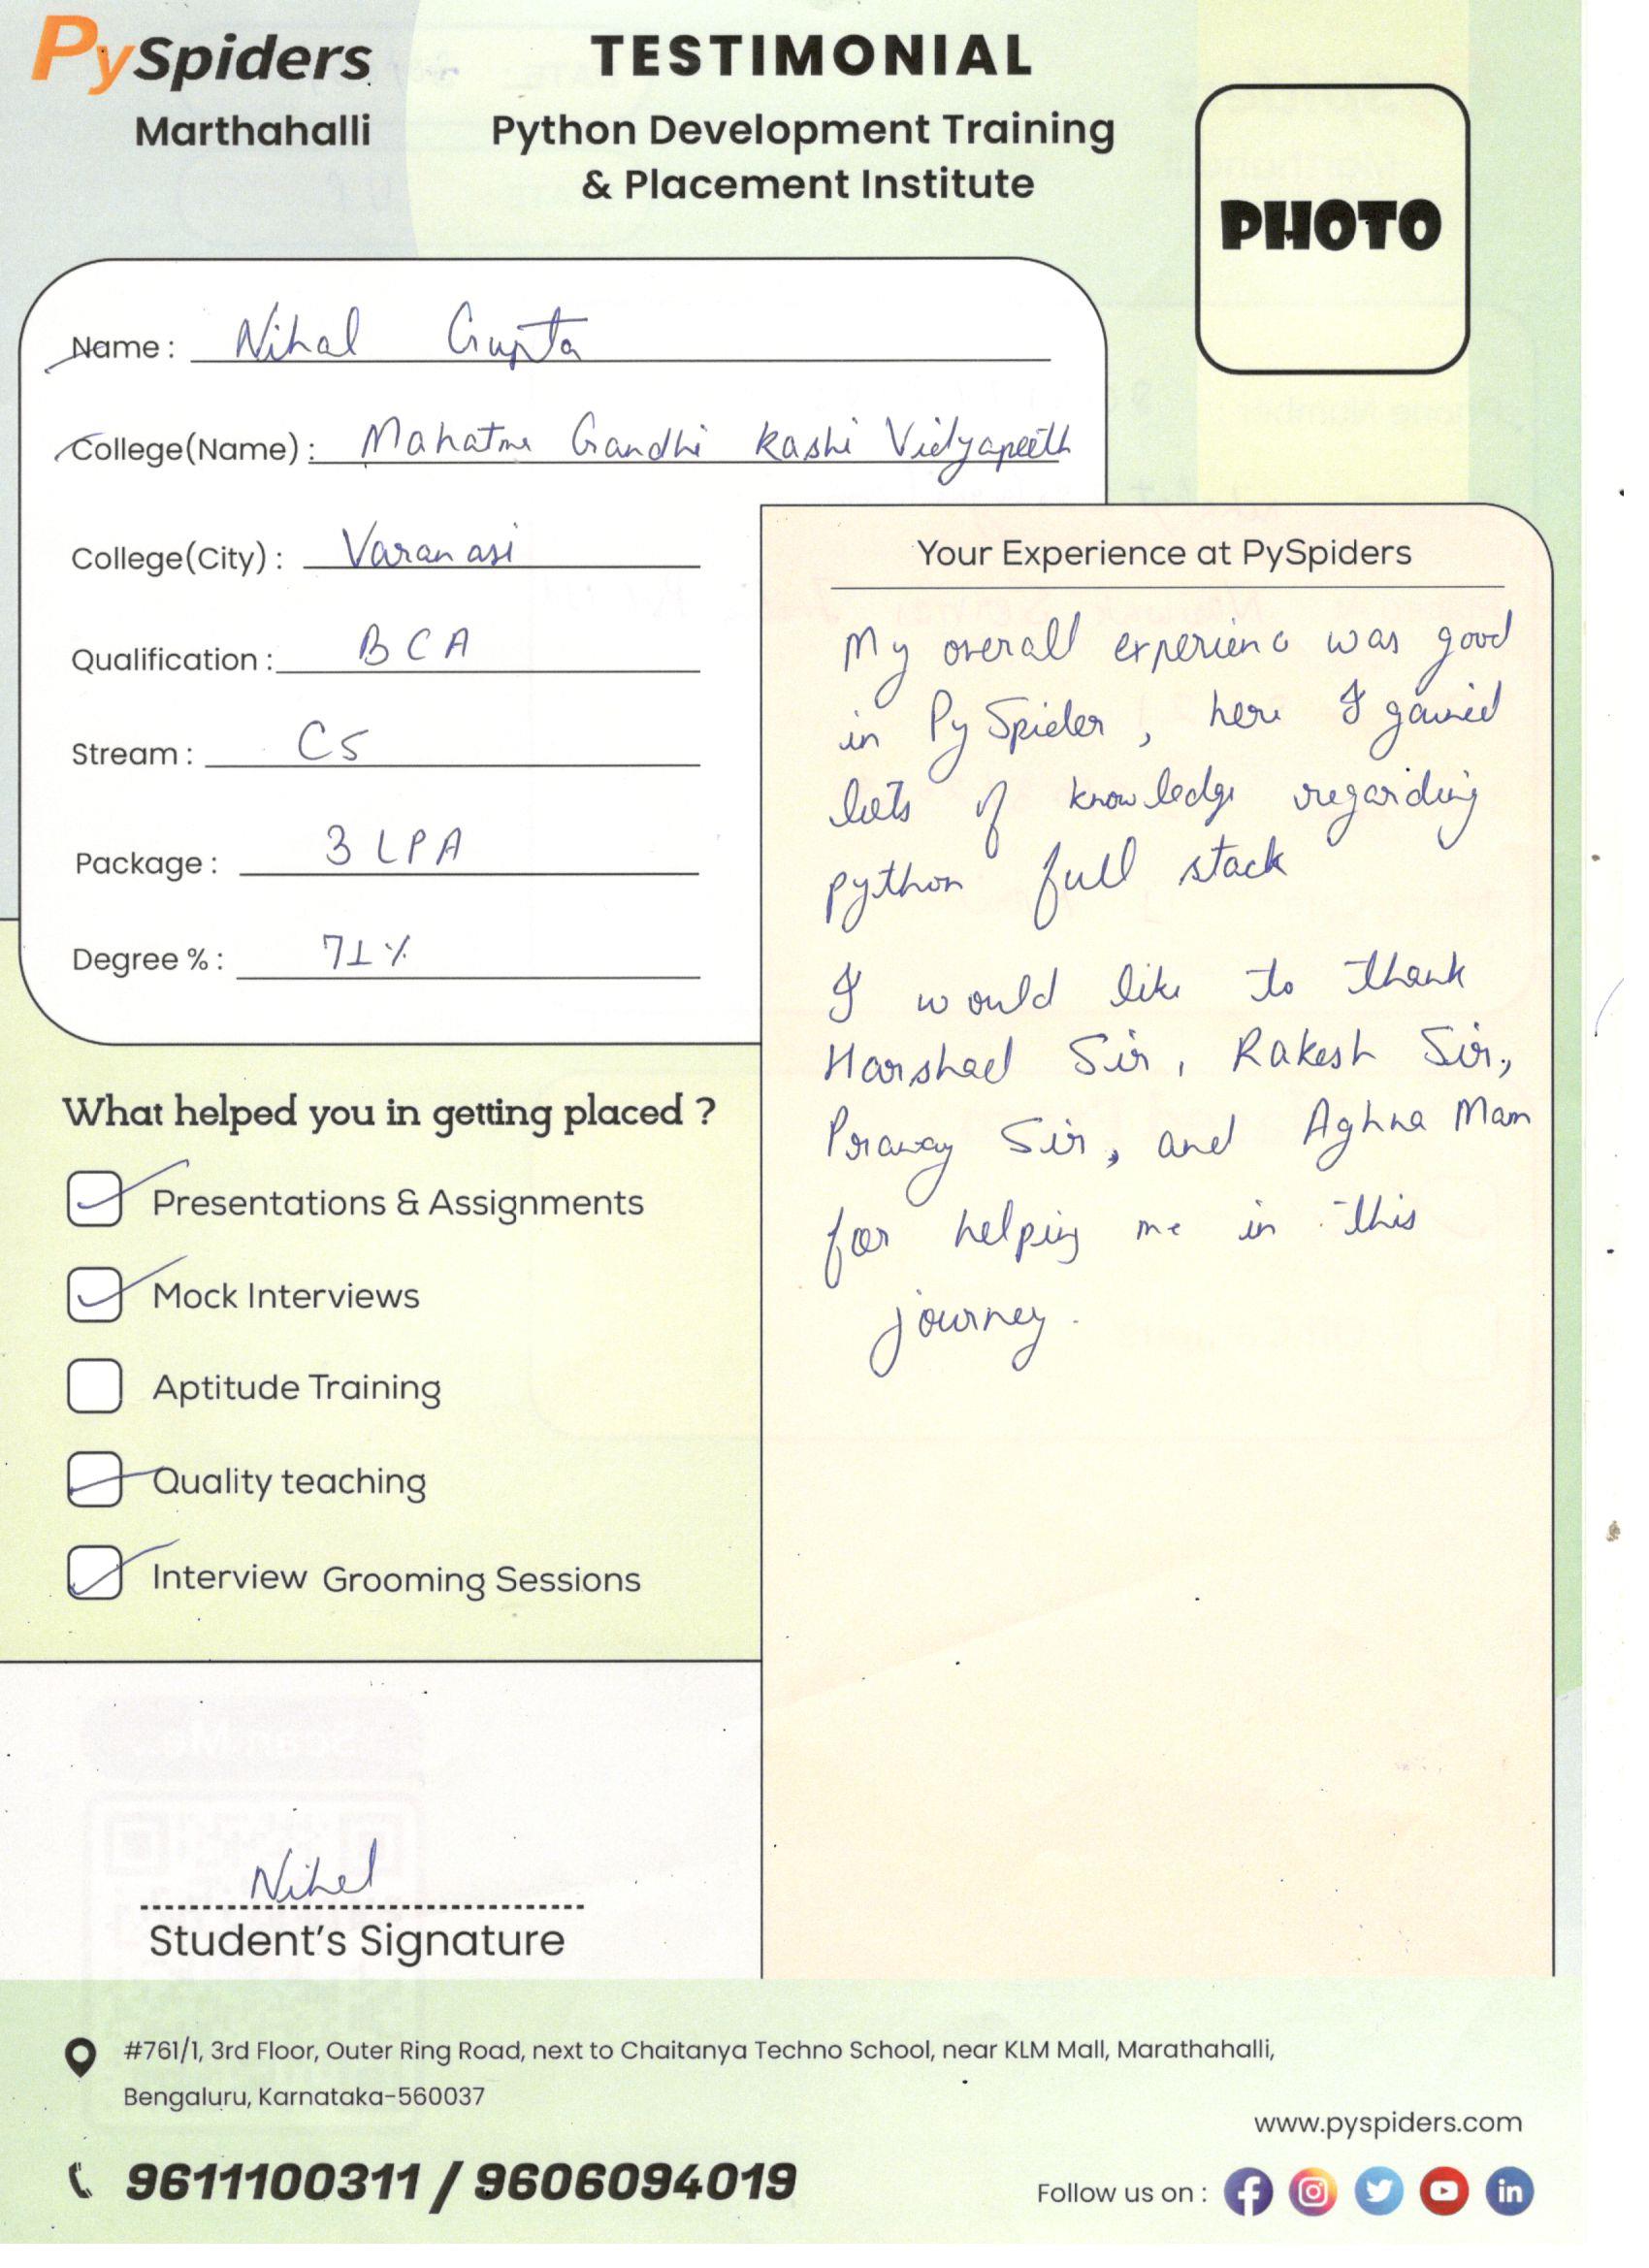 PySpiders
Marthahalli
TESTIMONIAL
Python Development Training
& Placement Institute
PHOTO
Name : Nihal Gupta
College(Name) : Mahatma Gandhi Kashi Vidyapeeth
College(City) : Varanasi
Qualification : BCA
Stream : CS
Package : 3 LPA
Degree % : 71%
What helped you in getting placed ?
Presentations & Assignments
Mock Interviews
Aptitude Training
Quality teaching
Interview Grooming Sessions
Nihal
Student's Signature
Your Experience at PySpiders
My overall experienc was good
in PySpider, here I gained
lots of knowledge regarding
python full stack
I would like to thank
Harshad Sir, Rakesh Sir,
Sir, and Aghna Mam
for helping me in this
journey.
#761/1, 3rd Floor, Outer Ring Road, next to Chaitanya Techno School, near KLM Mall, Marathahalli,
Bengaluru, Karnataka-560037
www.pyspiders.com
9611100311 / 9606094019
Follow us on :